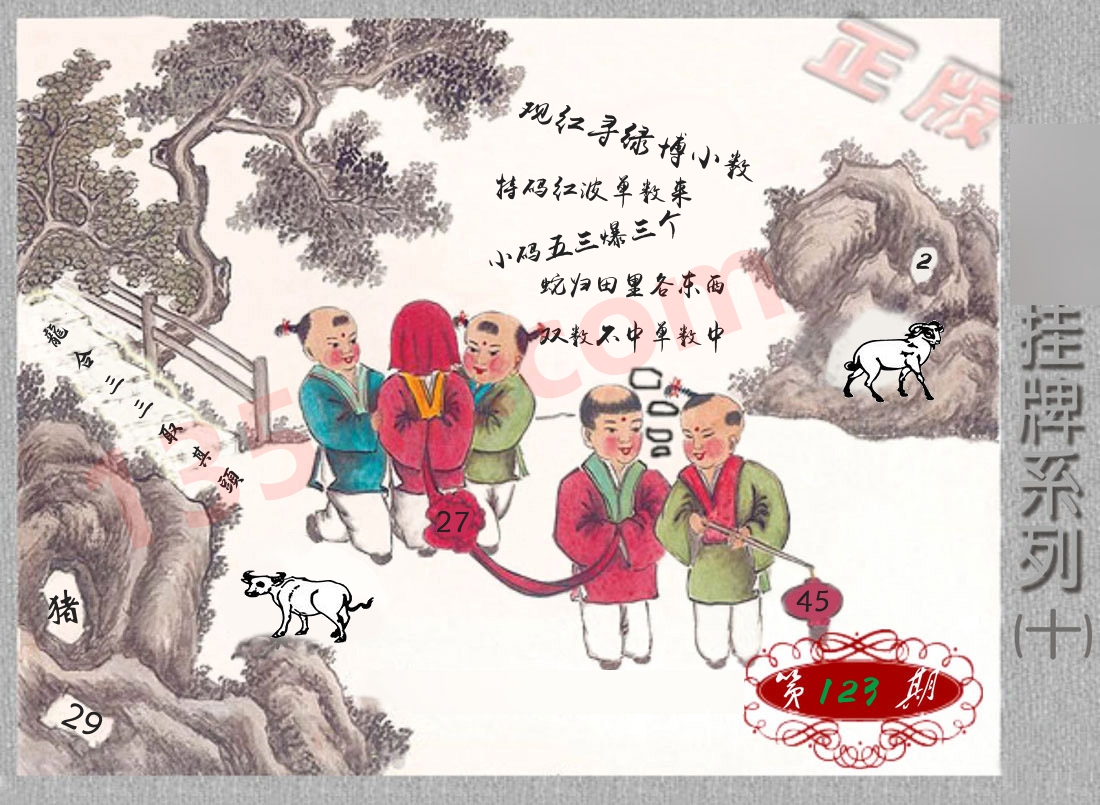 正版
观红寻绿博小数
特码红波单数来
小码五三爆三个
蜿归田里各东西
双数不中单数中
2
龍合三三取其頭
27
45
猪
29
第123期
挂牌系列(十)